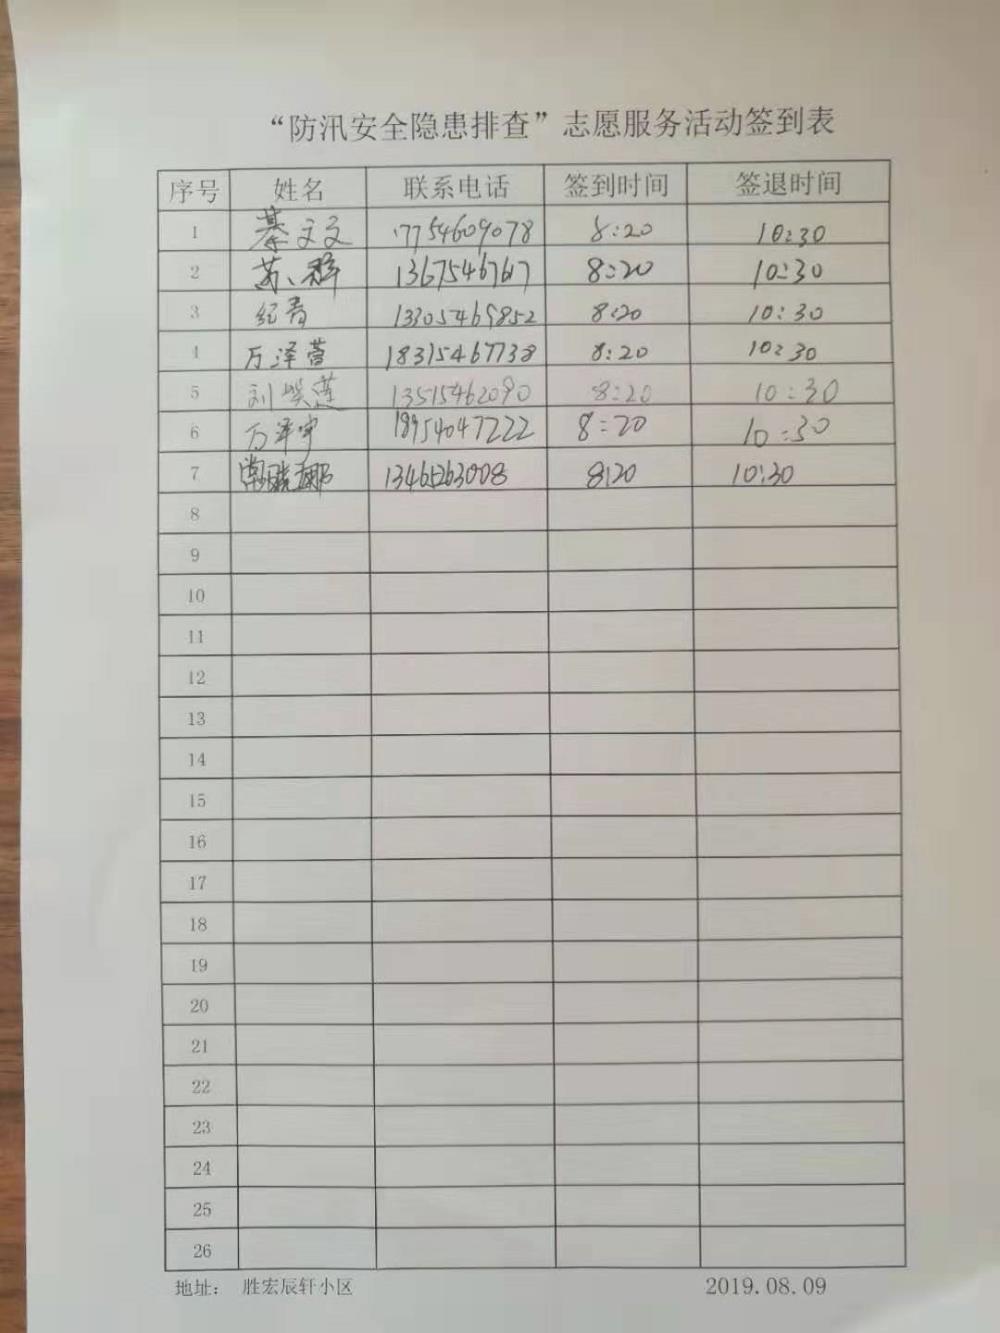 “防汛安全隐患排查”志愿服务活动签到表
序号 姓名 联系电话 签到时间 签退时间
1 綦文文 17754609078 8:20 10:30
2 苏群 13675467617 8:20 10:30
3 纪青 13305469852 8:20 10:30
4 万泽萱 18315467738 8:20 10:30
5 刘 莲 13515462090 8:20 10:30
6 万泽宇 18954047222 8:20 10:30
7 常晓娜 13465263008 8:20 10:30
8
9
10
11
12
13
14
15
16
17
18
19
20
21
22
23
24
25
26
地址： 胜宏辰轩小区 2019.08.09